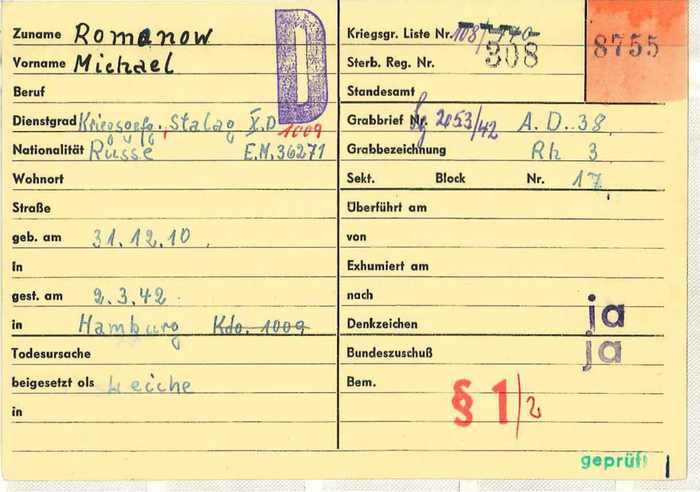 Zuname Romanow
Vorname Michael
Beruf
Dienstgrad Kriegsgefg., Stalag X.D 1009
Nationalität Russe E.M.36271
Wohnort
Straße
geb. am 31.12.10.
in
gest. am 2.3.42.
in Hamburg Kdo. 1009
Todesursache
beigesetzt als Leiche
in
D
Kriegsgr. Liste Nr. 308
8755
Sterb. Reg. Nr.
Standesamt
Grabbrief Nr. 2053/42 A.D..38.
Grabbezeichnung Rh 3
Sekt. Block Nr. 17
Überführt am
von
Exhumiert am
nach
Denkzeichen ja
Bundeszuschuß ja
Bem.
§ 1/2
geprüft